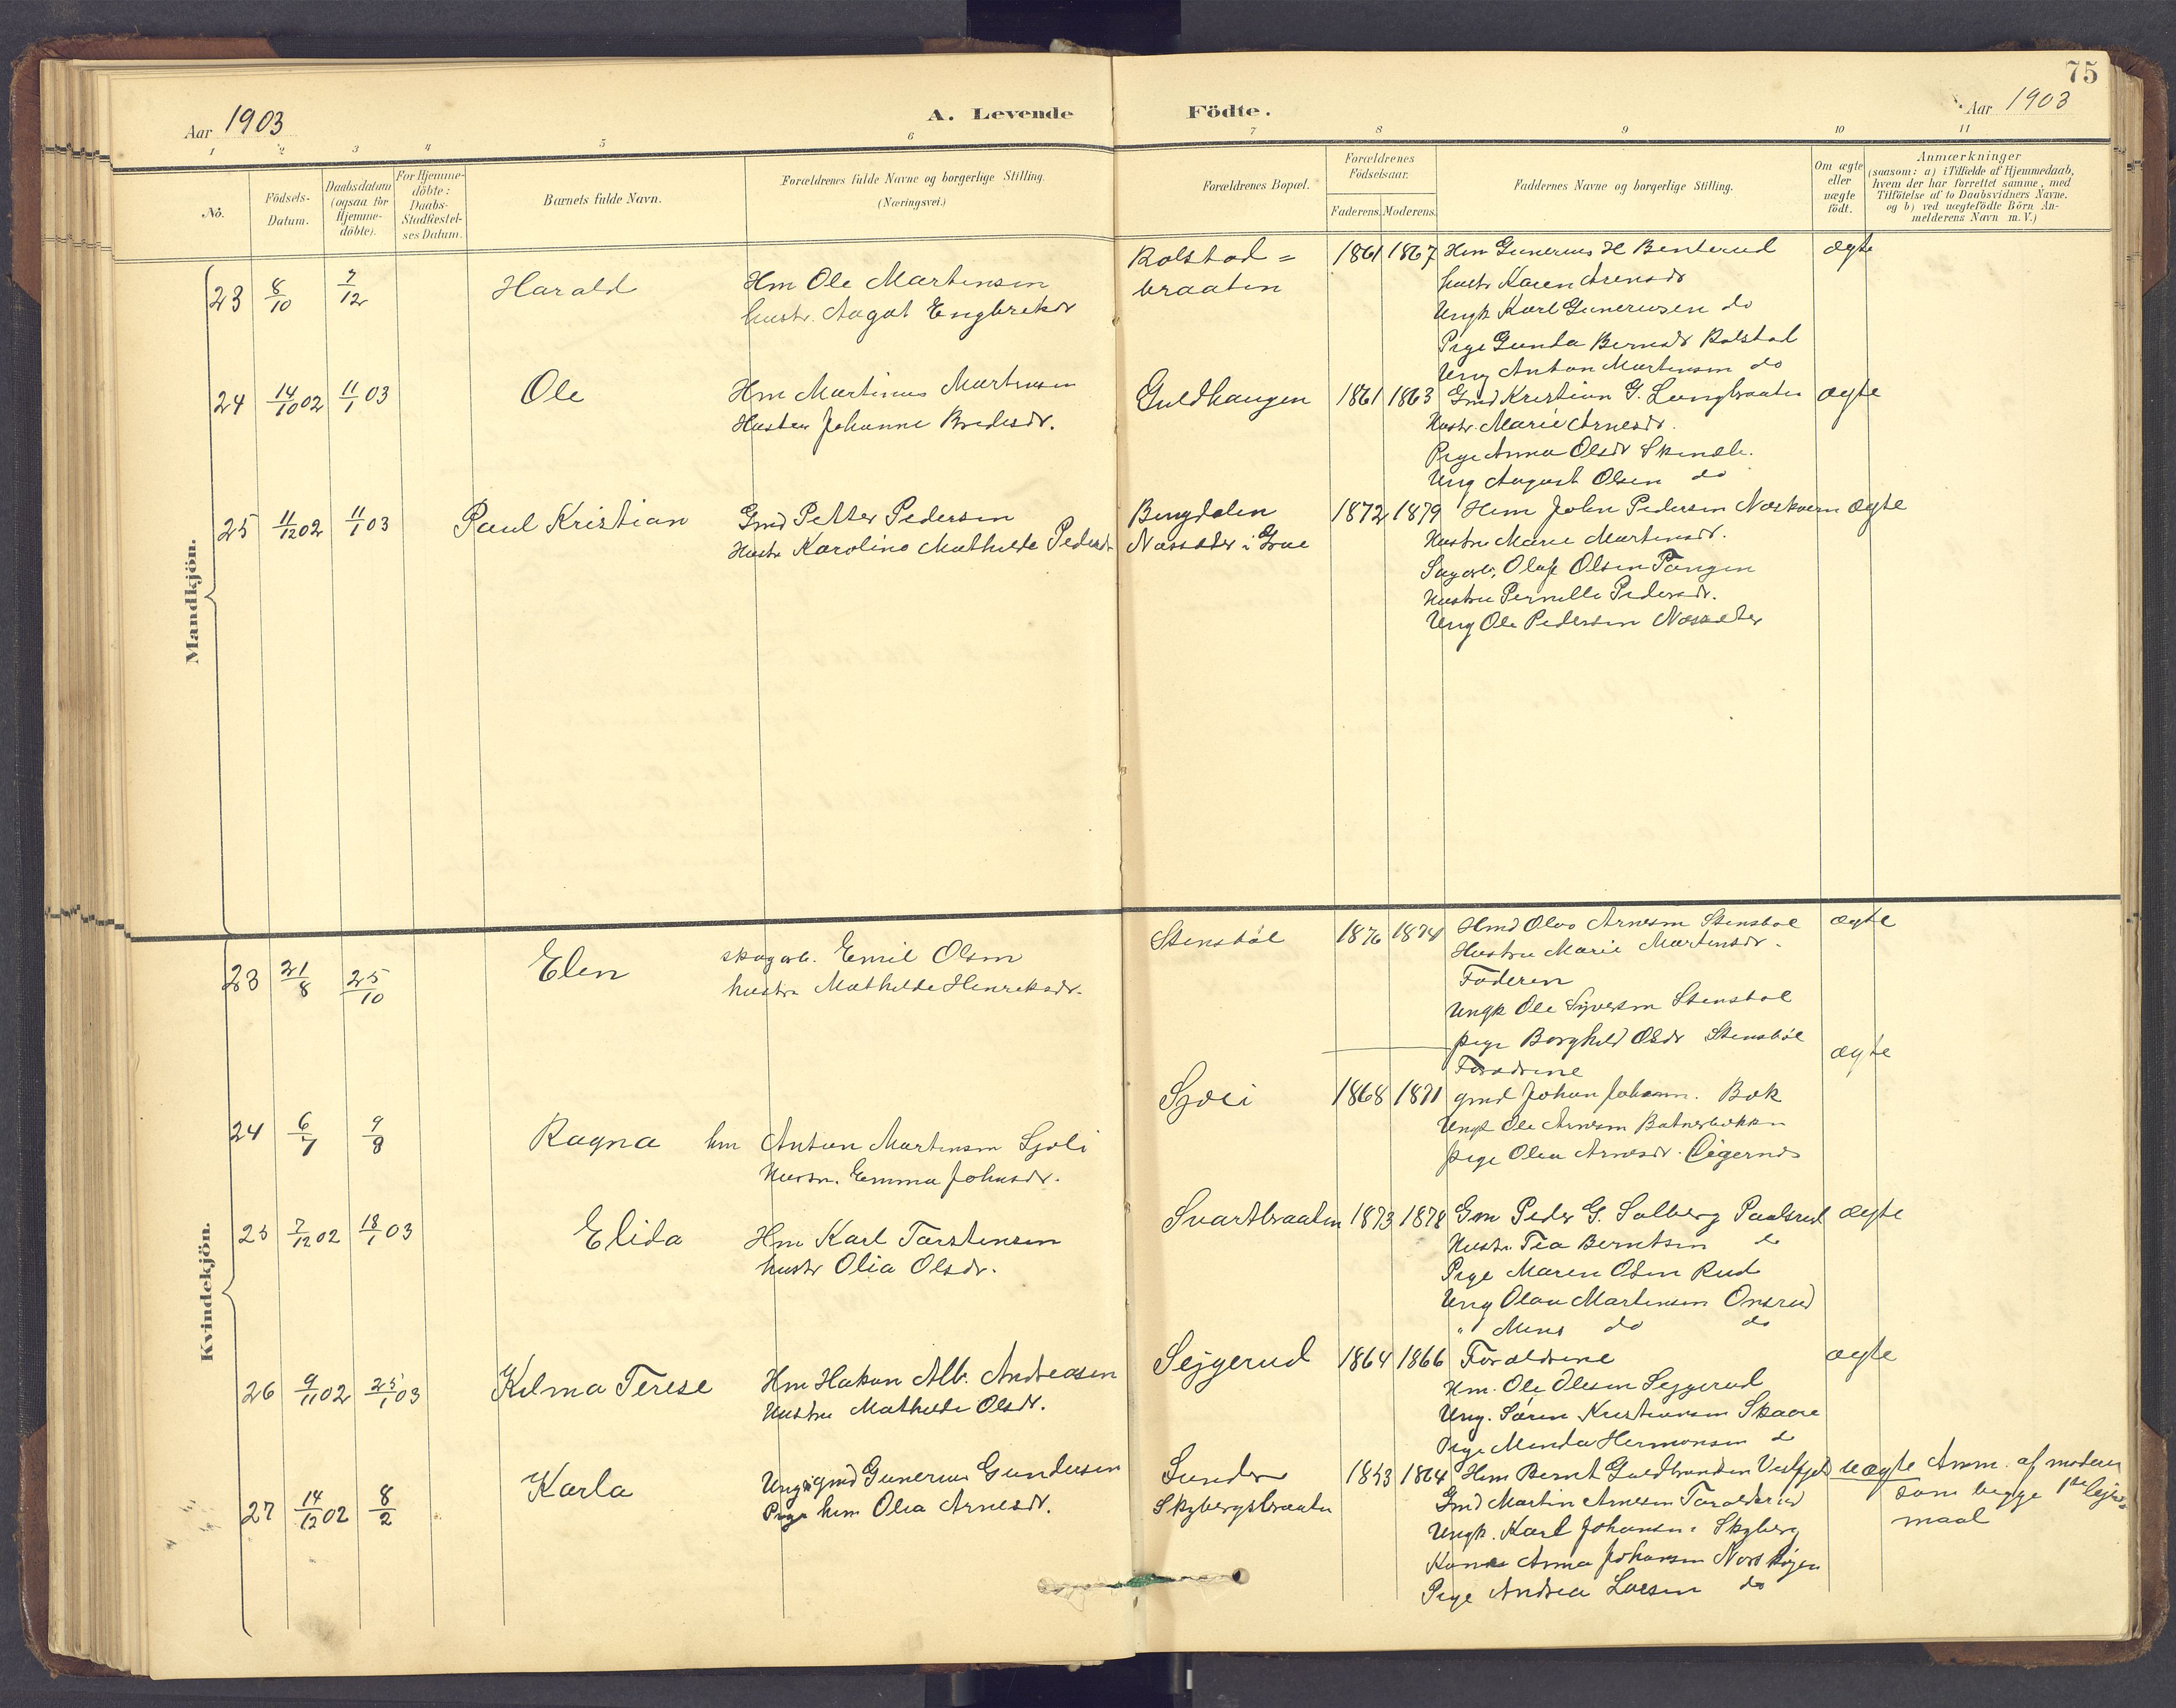 75
Aar 1903
A. Levende Födte.
Aar 1903
1 2 3 4 5 6 7 8 9 10 11
No.
Födsels-Datum.
Daabsdatum (ogsaa for Hjemme-döbte).
For Hjemme-döbte: Daabs-Stadfæstel-ses Datum.
Barnets fulde Navn.
Forældrenes fulde Navne og borgerlige Stilling.
(Næringsvei.)
Forældrenes Bopæl.
Forældrenes Födselsaar.
Faderens. Moderens.
Faddernes Navne og borgerlige Stilling.
Om ægte eller uægte födt.
Anmærkninger
(saasom: a) i Tilfælde af Hjemmedaab,
hvem der har forrettet samme, med
Tilföielse af to Daabsvidners Navne,
og b) ved uægtefödte Börn An-
melderens Navn m. V.)
Mandkjön.
23 8/10 7/12 Harald
Hm Ole Martinsen
hustr. Aagot Engbretsdr
Rolstad=
braaten
1861 1867
Hm Gunerius H Benterud
hustr Karen Arensdr
Ungk Karl Guneriusen do
Pige Gunda Berntsdr Rolstad
Ung Anton Martinsen do
ægte
24 14/10 02 11/1 03 Ole
Hm Martinus Martinsen
Hustru Johanne Bredesdr.
Guldhaugen
1861 1863
Gmd Kristian G. Langbraaten
Hustr. Marie Arnesdr.
Pige Anna Olsdr
Ung August Olsen do
ægte
25 11/12 02 11/1 03 Paul Kristian
Gmd Petter Pedersen
Hustr Karolina Mathilde Pedersdr
Bergdalen
Næssæter i Grue
1872 1879
Hm John Pedersen
Hustru Marie Martinsdr.
Sagarb. Oluf Olsen Tangen
Hustru Pernille Pedersdr.
Ung Ole Pedersen Næssæter
ægte
Kvindekjön.
23 21/8 25/10 Elen
skogarb. Emil Olsen
hustru Mathilde Henriksdr.
Stensböl
1876 1874
Gmd Olav Arnesen Stensböl
Hustru Marie Martinsdr.
Faderen
Ungk Ole Syversen Stensböl
pige Borghild Olsdr Stensböl
ægte
24 6/7 9/8 Ragna
hm Anton Martinsen Sjöli
Hustru. Emma Johnsdr.
Sjöli
1868 1871
Forældrene
gmd Johan Johannes. Bæk
Ungk Ole Arnesen
pige Olea Arnesdr.
ægte
25 7/12 02 18/1 03 Elida
Hm Karl Torstensen
hustr Olia Olsdr.
Svartbraaten
1873 1878
Gm Peder G. Solberg Paalsrud
Hustr. Tea Berntsen do
Pige Maren Olsen Rud
Ung Olav Martinsen Onsrud
" Mens do do
ægte
26 9/11 02 25/1 03 Kilma Terese
Hm Hakon Alb. Andreasen
Hustru Mathilde Olsdr.
Sejgerud
1864 1866
Forældrene
Hm. Ole Olesen Sejgerud
Ung. Sören Kristiansen Skaare
Pige Minda Hermansen do
ægte
27 14/12 02 8/2 Karla
Ung gmd Gunerius Gundersen
Pige hm Olea Arnesdr.
Sunder
Skybergsbraaten
1843 1864
Hm Bernt Guldbrandsen
Gmd Martin Arnesen
Ungk. Karl Johansen Skyberg
Kone Anna Johansen
Pige Andrea Larsen do
uægte Anm. af moderen
som begge 1ste lejers
maal